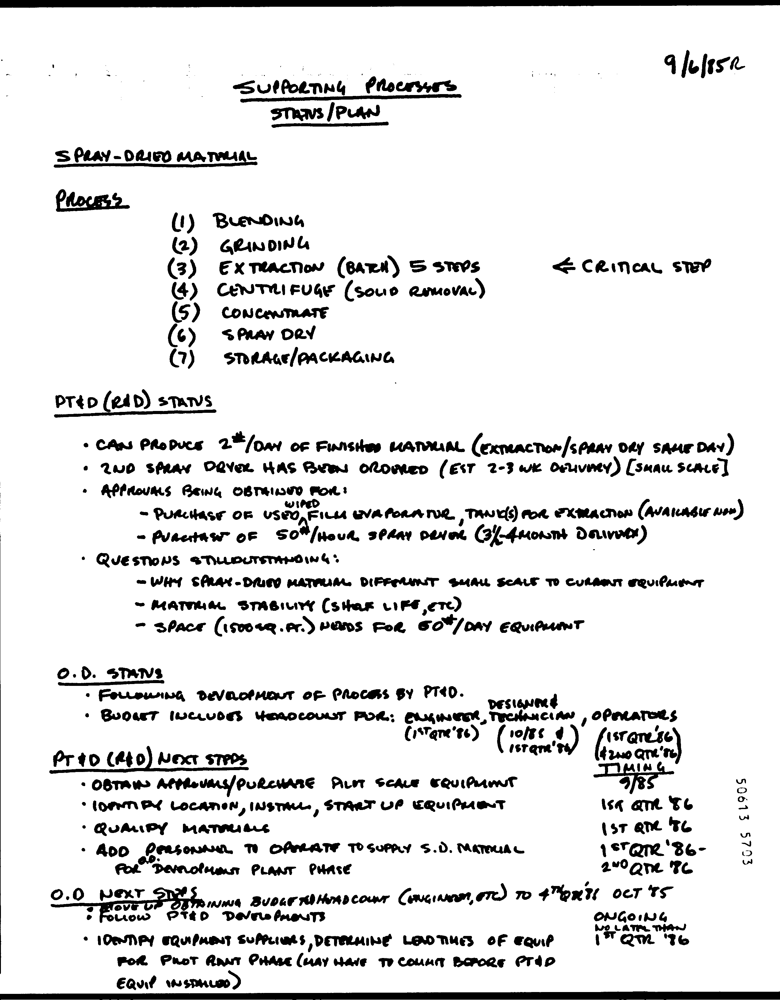 9/6/85R
SUPPORTING PROCESSES
STATUS/PLAN
SPRAY-DRIED MATERIAL
PROCESS
(1) BLENDING
(2) GRINDING
(3) EXTRACTION (BATCH) 5 STEPS ← CRITICAL STEP
(4) CENTRIFUGE (SOLID REMOVAL)
(5) CONCENTRATE
(6) SPRAY DRY
(7) STORAGE/PACKAGING
PT&D (R&D) STATUS
• CAN PRODUCE 2#/DAY OF FINISHED MATERIAL (EXTRACTION/SPRAY DRY SAME DAY)
• 2ND SPRAY DRYER HAS BEEN ORDERED (EST 2-3 WK DELIVERY) [SMALL SCALE]
• APPROVALS BEING OBTAINED FOR:
WIPED
- PURCHASE OF USED ^ FILM EVAPORATOR, TANK(S) FOR EXTRACTION (AVAILABLE NOW)
- PURCHASE OF 50#/HOUR SPRAY DRYER (3½-4 MONTH DELIVERY)
• QUESTIONS STILL OUTSTANDING:
- WHY SPRAY-DRIED MATERIAL DIFFERENT SMALL SCALE TO CURRENT EQUIPMENT
- MATERIAL STABILITY (SHELF LIFE, ETC)
- SPACE (1500 SQ. FT.) NEEDS FOR 50#/DAY EQUIPMENT
O.D. STATUS
• FOLLOWING DEVELOPMENT OF PROCESS BY PT&D.
DESIGNER &
• BUDGET INCLUDES HEADCOUNT FOR: ENGINEER, TECHNICIAN, OPERATORS
(1ST QTR '86) (10/85 & 1ST QTR '86) (1ST QTR '86) (& 2ND QTR '86)
PT&D (R&D) NEXT STEPS TIMING
• OBTAIN APPROVALS/PURCHASE PILOT SCALE EQUIPMENT 9/85
• IDENTIFY LOCATION, INSTALL, START UP EQUIPMENT 1ST QTR '86
• QUALIFY MATERIALS 1ST QTR '86
• ADD PERSONNEL TO OPERATE TO SUPPLY S.D. MATERIAL 1ST QTR '86-
FOR O.D. DEVELOPMENT PLANT PHASE 2ND QTR '86
O.D NEXT STEPS
• MOVE UP OBTAINING BUDGETED HEADCOUNT (ENGINEER, ETC) TO 4TH QTR '85 OCT '85
• FOLLOW PT&D DEVELOPMENTS ONGOING
NO LATER THAN
• IDENTIFY EQUIPMENT SUPPLIERS, DETERMINE LEAD TIMES OF EQUIP 1ST QTR '86
FOR PILOT PLANT PHASE (MAY HAVE TO COMMIT BEFORE PT&D
EQUIP INSTALLED)
50613 5703